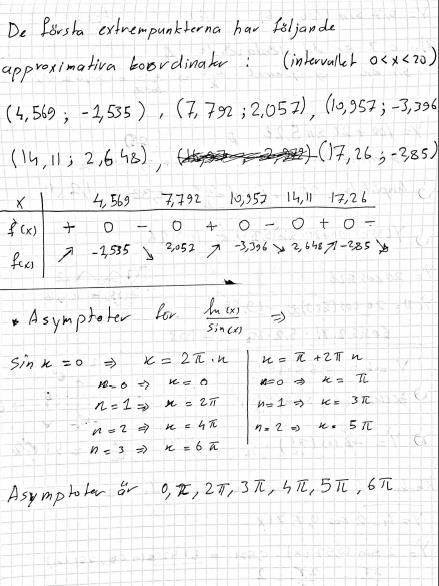 De första extrempunkterna har följande
approximativa koordinater : (intervallet 0<x<20)
(4,569 ; -1,535) , (7,792 ; 2,057), (10,957; -3,396
(14,11 ; 2,648), (17,26 ; -2,85)
x 4,569 7,792 10,957 14,11 17,26
f'(x) + 0 - 0 + 0 - 0 + 0 -
f(x) ↗ -1,535 ↘ 2,057 ↗ -3,396 ↘ 2,648 ↗ -2,85 ↘
• Asymptoter for ln(x)/sin(x) ⇒
Sin x = 0 ⇒ x = 2π·n | x = π + 2π n
n=0 ⇒ x = 0 | n=0 ⇒ x = π
n=1 ⇒ x = 2π | n=1 ⇒ x = 3π
n=2 ⇒ x = 4π | n=2 ⇒ x = 5π
n=3 ⇒ x = 6π
Asymptoter är 0, π, 2π, 3π, 4π, 5π, 6π